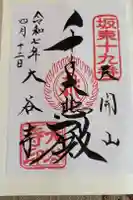 坂東十九番
天開山
千手大悲殿
大谷寺
令和七年
四月十二日